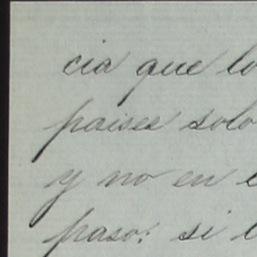 cia que lo
paises solo
y no en
paso: si